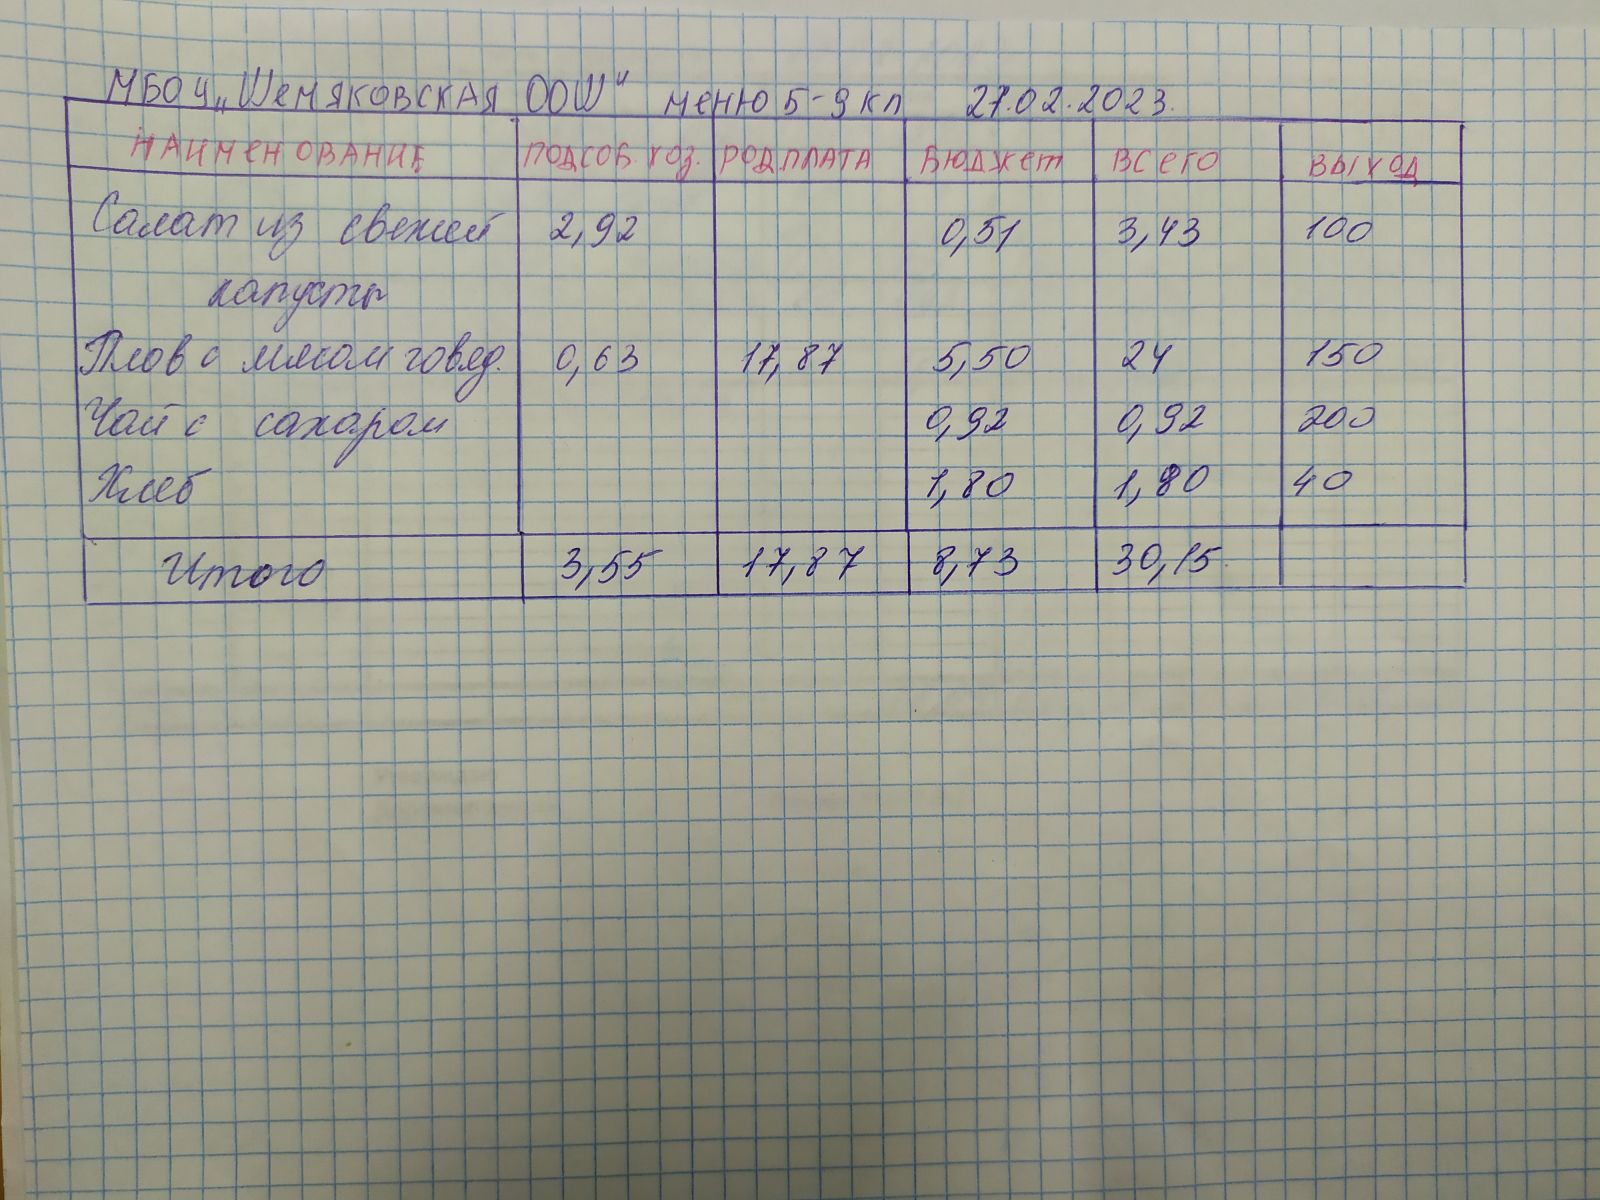 МБОУ „Шемяковская ООШ" меню 5-9 кл 27.02.2023.
НАИМЕНОВАНИЕ ПОДСОБ. ХОЗ. РОДПЛАТА БЮДЖЕТ ВСЕГО ВЫХОД
Салат из свежей 2,92 0,51 3,43 100
капусты
Плов с мясом говяд. 0,63 17,87 5,50 24 150
Чай с сахаром 0,92 0,92 200
Хлеб 1,80 1,80 40
Итого 3,55 17,87 8,73 30,15